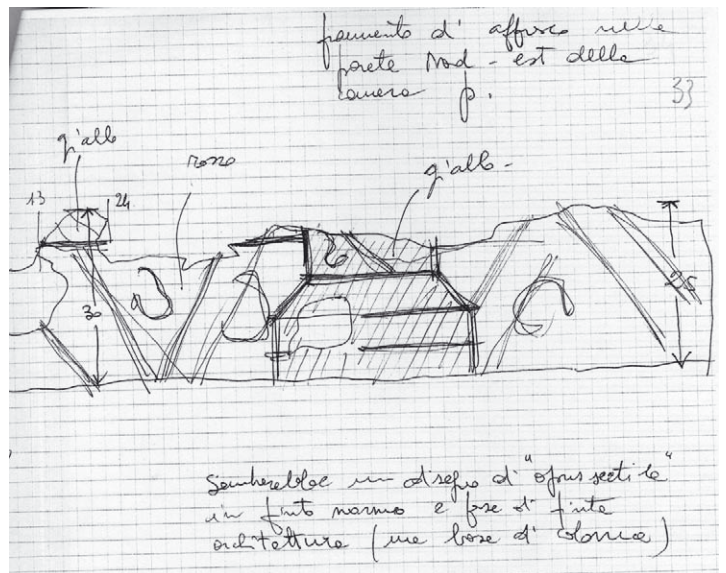 frammento di affresco nella
parete Nord - est della
camera p.
33
giallo
rosso
giallo -
13
24
30
25
Sembrerebbe un disegno di "opus sectile"
in finto marmo e fose di finta
architettura (una base di colonna)